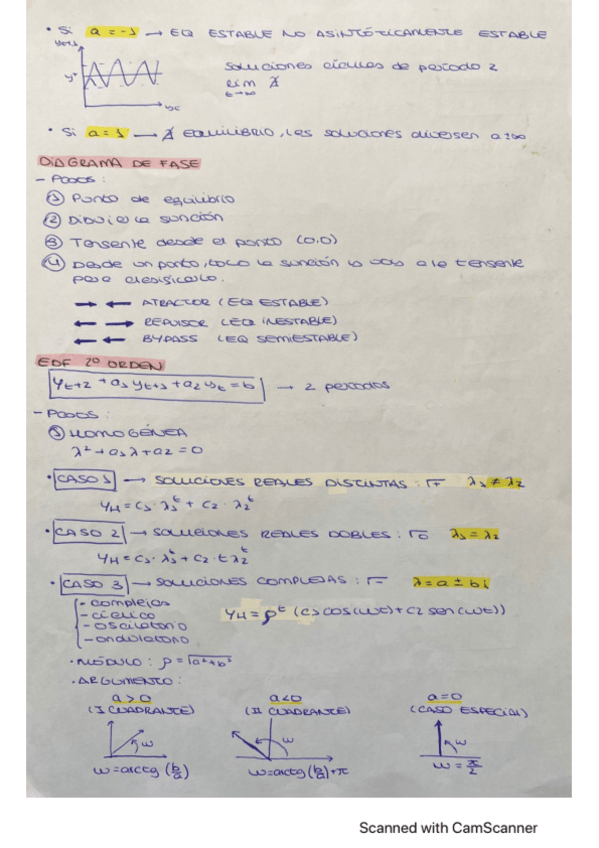 • Si a = -1 → EQ ESTABLE NO ASINTÓTICAMENTE ESTABLE
yt+1
y*
yt
soluciones cíclicas de periodo 2
lim ∄
t→∞
• Si a = 1 → ∄ EQUILIBRIO, las soluciones divergen a ±∞
DIAGRAMA DE FASE
- PASOS :
① Punto de equilibrio
② Dibujo la función
③ Tangente desde el punto (0,0)
④ Desde un punto, toco la función y voy a la tangente
para clasificarlo.
→ ← ATRACTOR (EQ ESTABLE)
← → REPULSOR (EQ INESTABLE)
← ← BYPASS (EQ SEMIESTABLE)
EDF 2º ORDEN
yt+2 + a1 yt+1 + a2 yt = b → 2 periodos
- PASOS :
① HOMOGÉNEA
λ² + a1λ + a2 = 0
• CASO 1 → SOLUCIONES REALES DISTINTAS : √+ λ1 ≠ λ2
YH = C1 · λ1^t + C2 · λ2^t
• CASO 2 → SOLUCIONES REALES DOBLES : √0 λ1 = λ2
YH = C1 · λ1^t + C2 · t λ2^t
• CASO 3 → SOLUCIONES COMPLEJAS : √- λ = a ± bi
- complejas
- cíclico
- oscilatorio
- ondulatorio
YH = ρ^t (C1 cos(ωt) + C2 sen(ωt))
• MÓDULO : ρ = √a²+b²
• ARGUMENTO :
a > 0 a < 0 a = 0
(I CUADRANTE) (II CUADRANTE) (CASO ESPECIAL)
ω ω ω
ω = arctg (b/a) ω = arctg (b/a) + π ω = π/2
Scanned with CamScanner